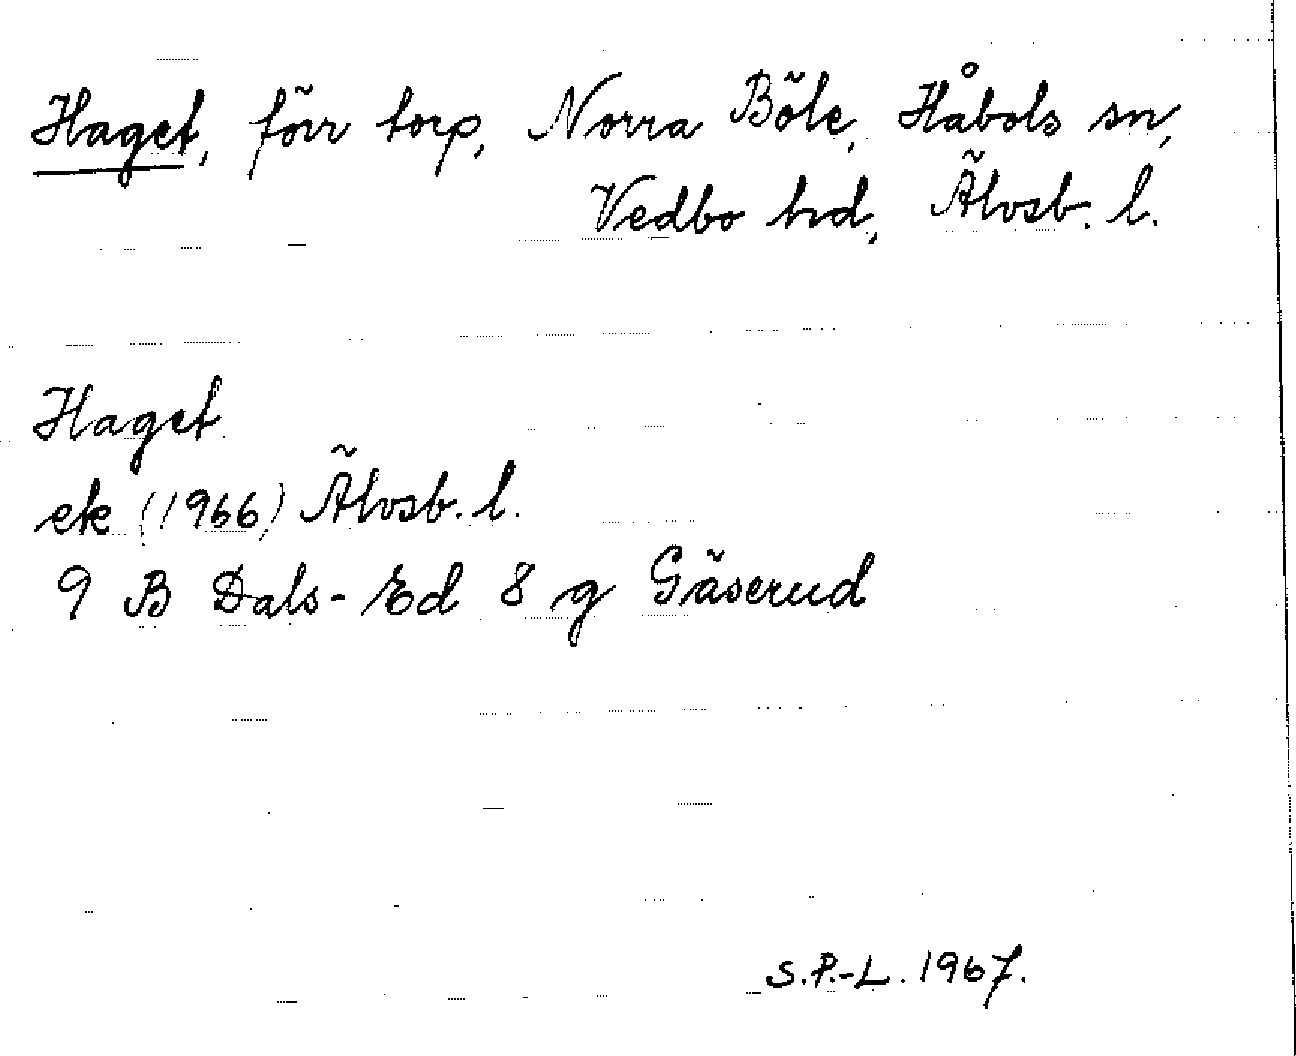 Haget, förr torp, Norra Böle, Håbols sn,
Vedbo hd, Älvsb. l.
Haget
ek (1966) Älvsb. l.
9 B Dals-Ed 8 g Gäserud
S.P.-L. 1967.